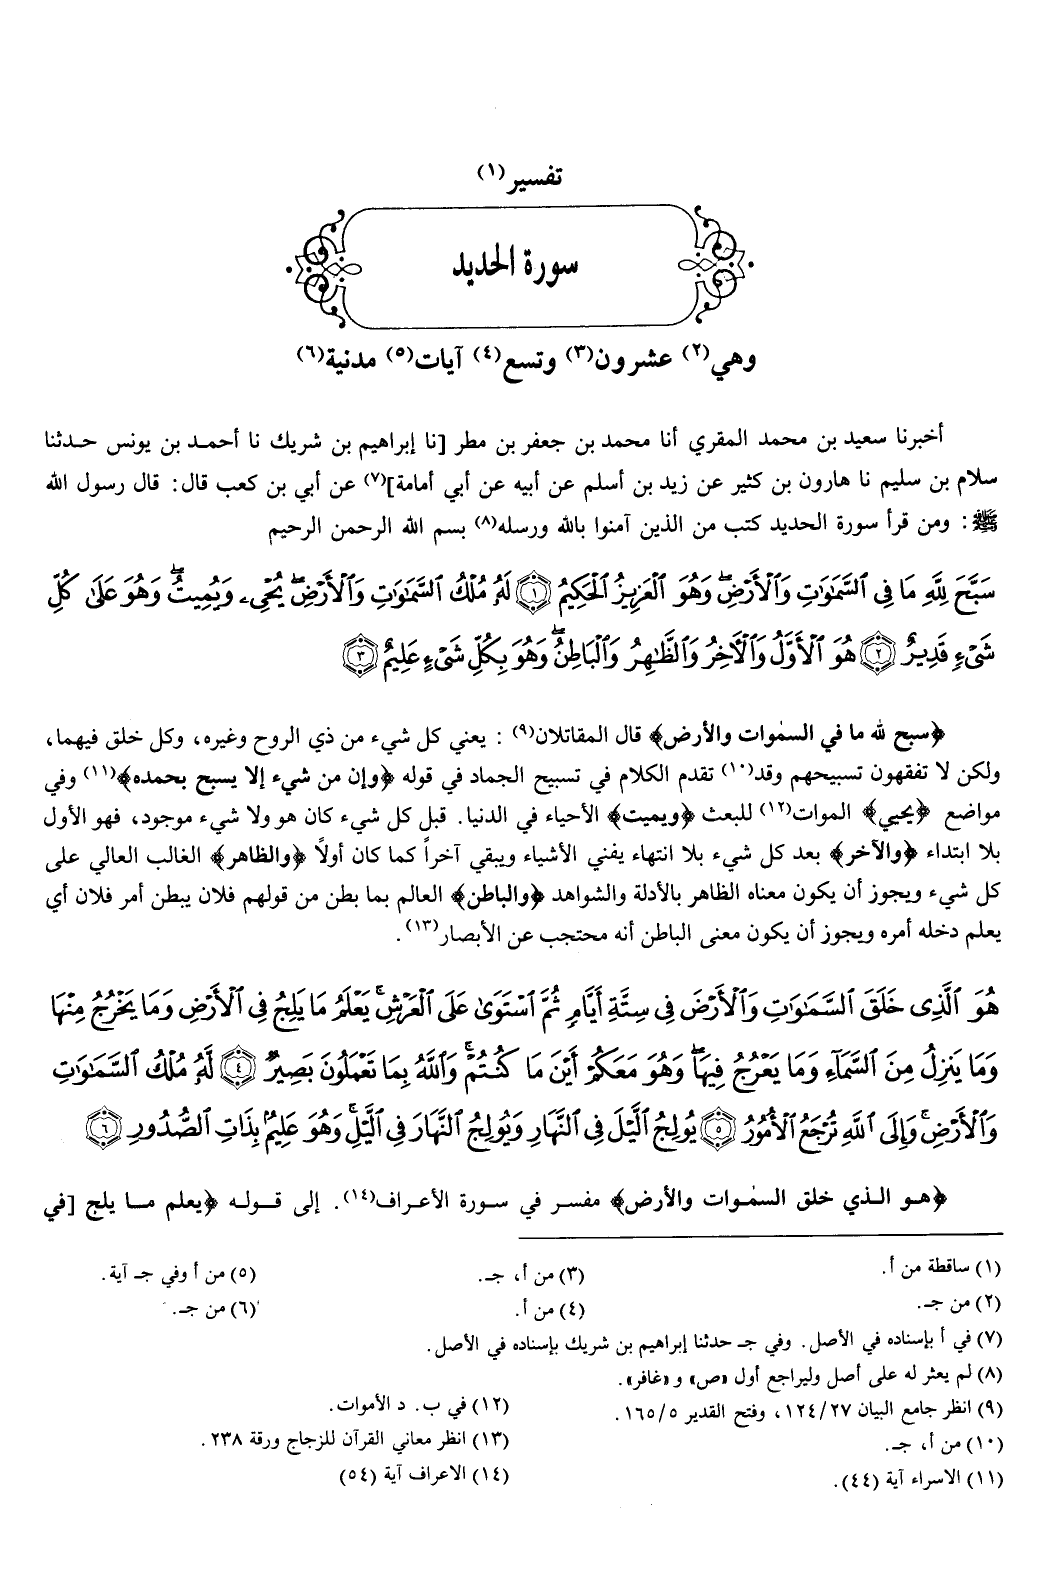 تفسير(١)
سورة الحديد
وهي(٢) عشرون(٣) وتسع(٤) آيات(٥) مدنية(٦)
أخبرنا سعيد بن محمد المقري أنا محمد بن جعفر بن مطر [نا إبراهيم بن شريك نا أحمد بن يونس حدثنا
سلام بن سليم نا هارون بن كثير عن زيد بن أسلم عن أبيه عن أبي أمامة](٧) عن أبي بن كعب قال: قال رسول الله
ﷺ: ومن قرأ سورة الحديد كتب من الذين آمنوا بالله ورسله(٨) بسم الله الرحمن الرحيم
سَبَّحَ لِلَّهِ مَا فِى ٱلسَّمَٰوَٰتِ وَٱلْأَرْضِۖ وَهُوَ ٱلْعَزِيزُ ٱلْحَكِيمُ ١ لَهُۥ مُلْكُ ٱلسَّمَٰوَٰتِ وَٱلْأَرْضِۖ يُحْىِۦ وَيُمِيتُۖ وَهُوَ عَلَىٰ كُلِّ
شَىْءٍ قَدِيرٌ ٢ هُوَ ٱلْأَوَّلُ وَٱلْآخِرُ وَٱلظَّٰهِرُ وَٱلْبَاطِنُۖ وَهُوَ بِكُلِّ شَىْءٍ عَلِيمٌ ٣
﴿سبح لله ما في السمٰوات والأرض﴾ قال المقاتلان(٩) : يعني كل شيء من ذي الروح وغيره، وكل خلق فيهما،
ولكن لا تفقهون تسبيحهم وقد(١٠) تقدم الكلام في تسبيح الجماد في قوله ﴿وإن من شيء إلا يسبح بحمده﴾(١١) وفي
مواضع ﴿يحيي﴾ الموات(١٢) للبعث ﴿ويميت﴾ الأحياء في الدنيا. قبل كل شيء كان هو ولا شيء موجود، فهو الأول
بلا ابتداء ﴿والآخر﴾ بعد كل شيء بلا انتهاء يفني الأشياء ويبقي آخراً كما كان أولاً ﴿والظاهر﴾ الغالب العالي على
كل شيء ويجوز أن يكون معناه الظاهر بالأدلة والشواهد ﴿والباطن﴾ العالم بما بطن من قولهم فلان يبطن أمر فلان أي
يعلم دخله أمره ويجوز أن يكون معنى الباطن أنه محتجب عن الأبصار(١٣).
هُوَ ٱلَّذِى خَلَقَ ٱلسَّمَٰوَٰتِ وَٱلْأَرْضَ فِى سِتَّةِ أَيَّامٍ ثُمَّ ٱسْتَوَىٰ عَلَى ٱلْعَرْشِۚ يَعْلَمُ مَا يَلِجُ فِى ٱلْأَرْضِ وَمَا يَخْرُجُ مِنْهَا
وَمَا يَنزِلُ مِنَ ٱلسَّمَآءِ وَمَا يَعْرُجُ فِيهَاۖ وَهُوَ مَعَكُمْ أَيْنَ مَا كُنتُمْۚ وَٱللَّهُ بِمَا تَعْمَلُونَ بَصِيرٌ ٤ لَّهُۥ مُلْكُ ٱلسَّمَٰوَٰتِ
وَٱلْأَرْضِۚ وَإِلَى ٱللَّهِ تُرْجَعُ ٱلْأُمُورُ ٥ يُولِجُ ٱلَّيْلَ فِى ٱلنَّهَارِ وَيُولِجُ ٱلنَّهَارَ فِى ٱلَّيْلِۚ وَهُوَ عَلِيمٌۢ بِذَاتِ ٱلصُّدُورِ ٦
﴿هو الذي خلق السمٰوات والأرض﴾ مفسر في سورة الأعراف(١٤). إلى قوله ﴿يعلم ما يلج [في
(١) ساقطة من أ. (٣) من أ، جـ. (٥) من أ وفي جـ آية.
(٢) من جـ. (٤) من أ. (٦) من جـ.
(٧) في أ بإسناده في الأصل. وفي جـ حدثنا إبراهيم بن شريك بإسناده في الأصل.
(٨) لم يعثر له على أصل وليراجع أول «ص» و«غافر».
(٩) انظر جامع البيان ١٢٤/٢٧، وفتح القدير ١٦٥/٥. (١٢) في ب. د الأموات.
(١٠) من أ، جـ. (١٣) انظر معاني القرآن للزجاج ورقة ٢٣٨.
(١١) الاسراء آية (٤٤). (١٤) الاعراف آية (٥٤)